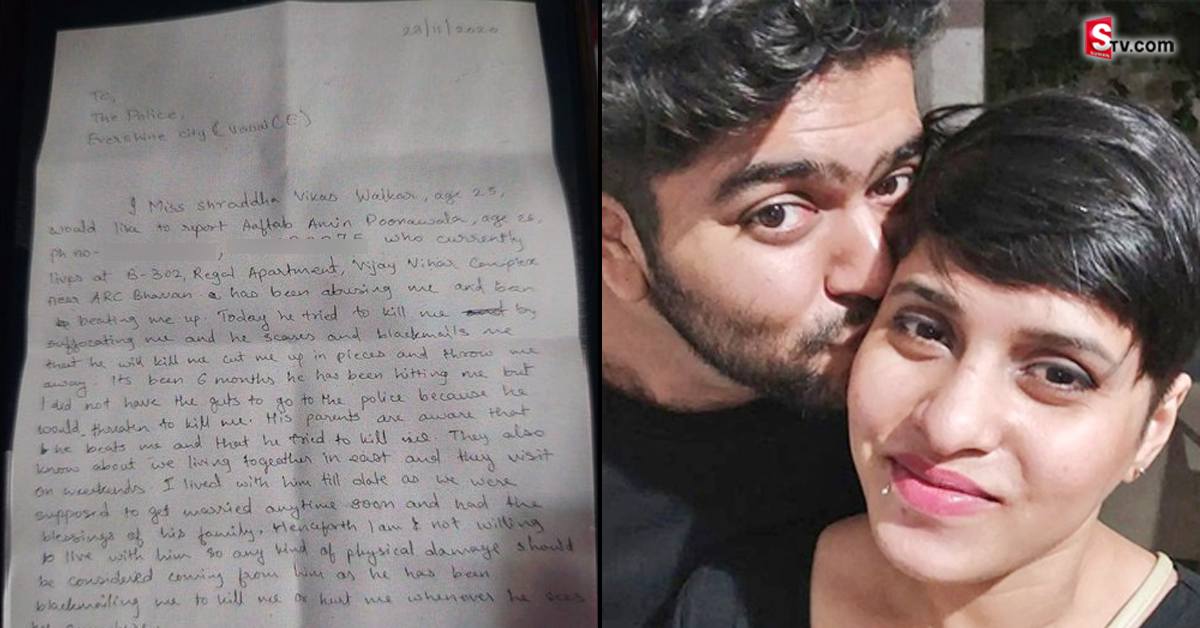 23/11/2020
To,
The Police,
Evershine city (Vasai (E)
I Miss Shraddha Vikas Walkar, age 25,
would like to report Aaftab Amin Poonawala, age 26,
Ph no- , who currently
lives at B-302, Regal Apartment, Vijay Vihar Complex
near ARC Bhavan has been abusing me and been
beating me up. Today he tried to kill me by
suffocating me and he scares and blackmails me
that he will kill me cut me up in pieces and throw me
away. Its been 6 months he has been hitting me but
I did not have the guts to go to the police because he
would threaten to kill me. His parents are aware that
he beats me and that he tried to kill me. They also
know about we living together in and they visit
on weekends. I lived with him till date as we were
supposed to get married anytime soon and had the
blessings of his family. Henceforth I am not willing
to live with him so any kind of physical damage should
be considered coming from him as he has been
blackmailing me to kill me or hurt me whenever he sees
STV.com